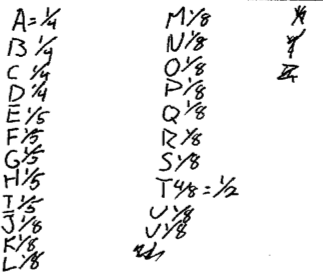 A=1/4
B 1/4
C 1/4
D 1/4
E 1/5
F 1/5
G 1/5
H 1/5
I 1/5
J 1/8
K 1/8
L 1/8
M 1/8
N 1/8
O 1/8
P 1/8
Q 1/8
R 1/8
S 1/8
T 4/8 = 1/2
U 1/8
V 1/8